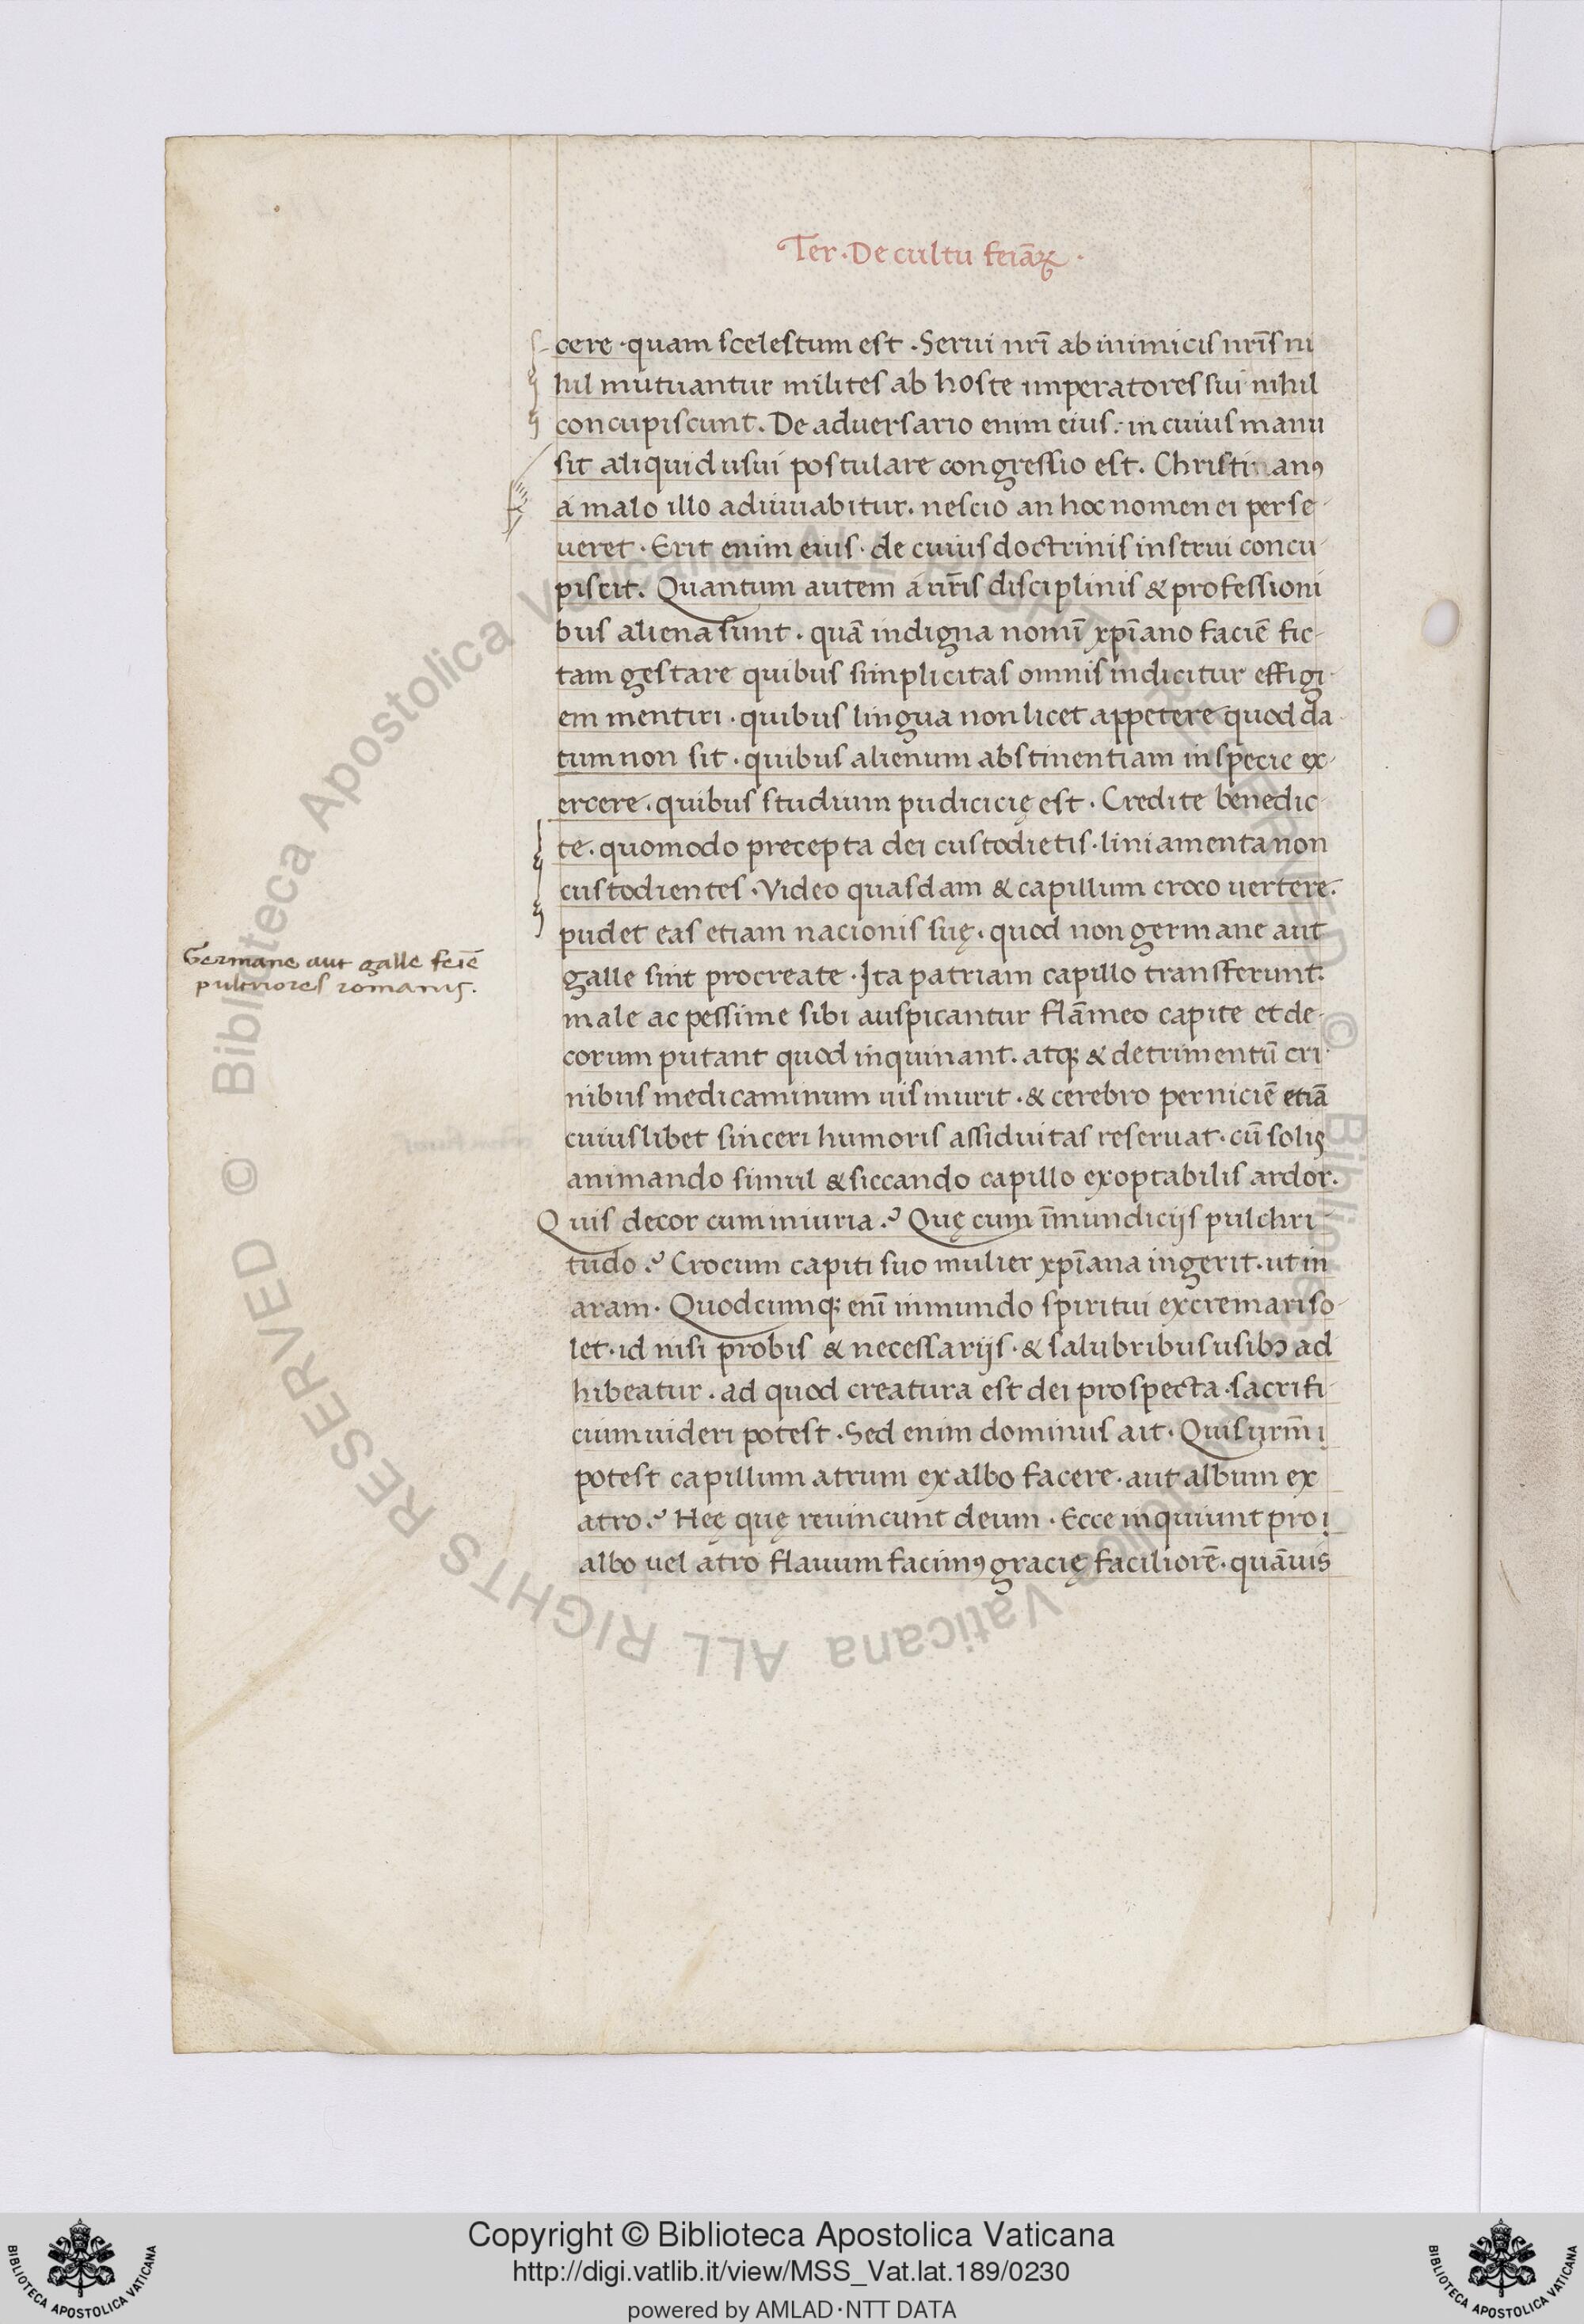 Ter · De cultu feīāꝝ ·
cere · quam scelestum est · Serui nrī ab inimicis nrīs ni
hil mutuantur milites ab hoste imperatores sui nihil
concupiscunt. De adversario enim eius : in cuius manu
sit aliquid usui postulare congressio est. Christianꝰ
a malo illo adiuuabitur. nescio an hoc nomen ei perse-
ueret · Erit enim eius · de cuius doctrinis instrui concu-
piscit. Quantum autem a urīs disciplinis & professioni
bus aliena sunt · quā indigna nomī xpīano faciē fic-
tam gestare quibus simplicitas omnis indicitur effigi-
em mentiri · quibus lingua non licet appetere quod da-
tum non sit · quibus alienum abstinentiam in specie ex-
ercere · quibus studium pudicicię est · Credite benedic-
te · quomodo precepta dei custodietis · liniamenta non
custodientes · Video quasdam & capillum croco uertere.
pudet eas etiam nacionis suę · quod non germane aut
galle sint procreate · Ita patriam capillo transferunt.
male ac pessime sibi auspicantur flāmeo capite et de-
corum putant quod inquinant. atq; & detrimentū cri-
nibus medicaminum uis inurit · & cerebro perniciē etiā
cuiuslibet sinceri humoris assiduitas reseruat · cū solis
animando simul & siccando capillo exoptabilis ardor.
Quis decor cum iniuria ? Quę cum īmundicijs pulchri-
tudo ? Crocum capiti suo mulier xpīana ingerit · ut in
aram · Quodcumq; enī inmundo spiritui excremari so-
let · id nisi probis & necessarijs · & salubribus usibꝫ ad
hibeatur · ad quod creatura est dei prospecta · sacrifi-
cium uideri potest · Sed enim dominus ait · Quis urm̄
potest capillum atrum ex albo facere · aut album ex
atro ? Heę quę reuincunt deum · Ecce inquiunt pro
albo vel atro flauum facimꝰ gracię faciliorē · quāuis
Germane aut galle feīē
pulcriores romanis.
Copyright © Biblioteca Apostolica Vaticana
http://digi.vatlib.it/view/MSS_Vat.lat.189/0230
powered by AMLAD·NTT DATA
BIBLIOTECA APOSTOLICA VATICANA
BIBLIOTECA APOSTOLICA VATICANA
© Biblioteca Apostolica Vaticana ALL RIGHTS RESERVED
© Biblioteca Apostolica Vaticana ALL RIGHTS RESERVED